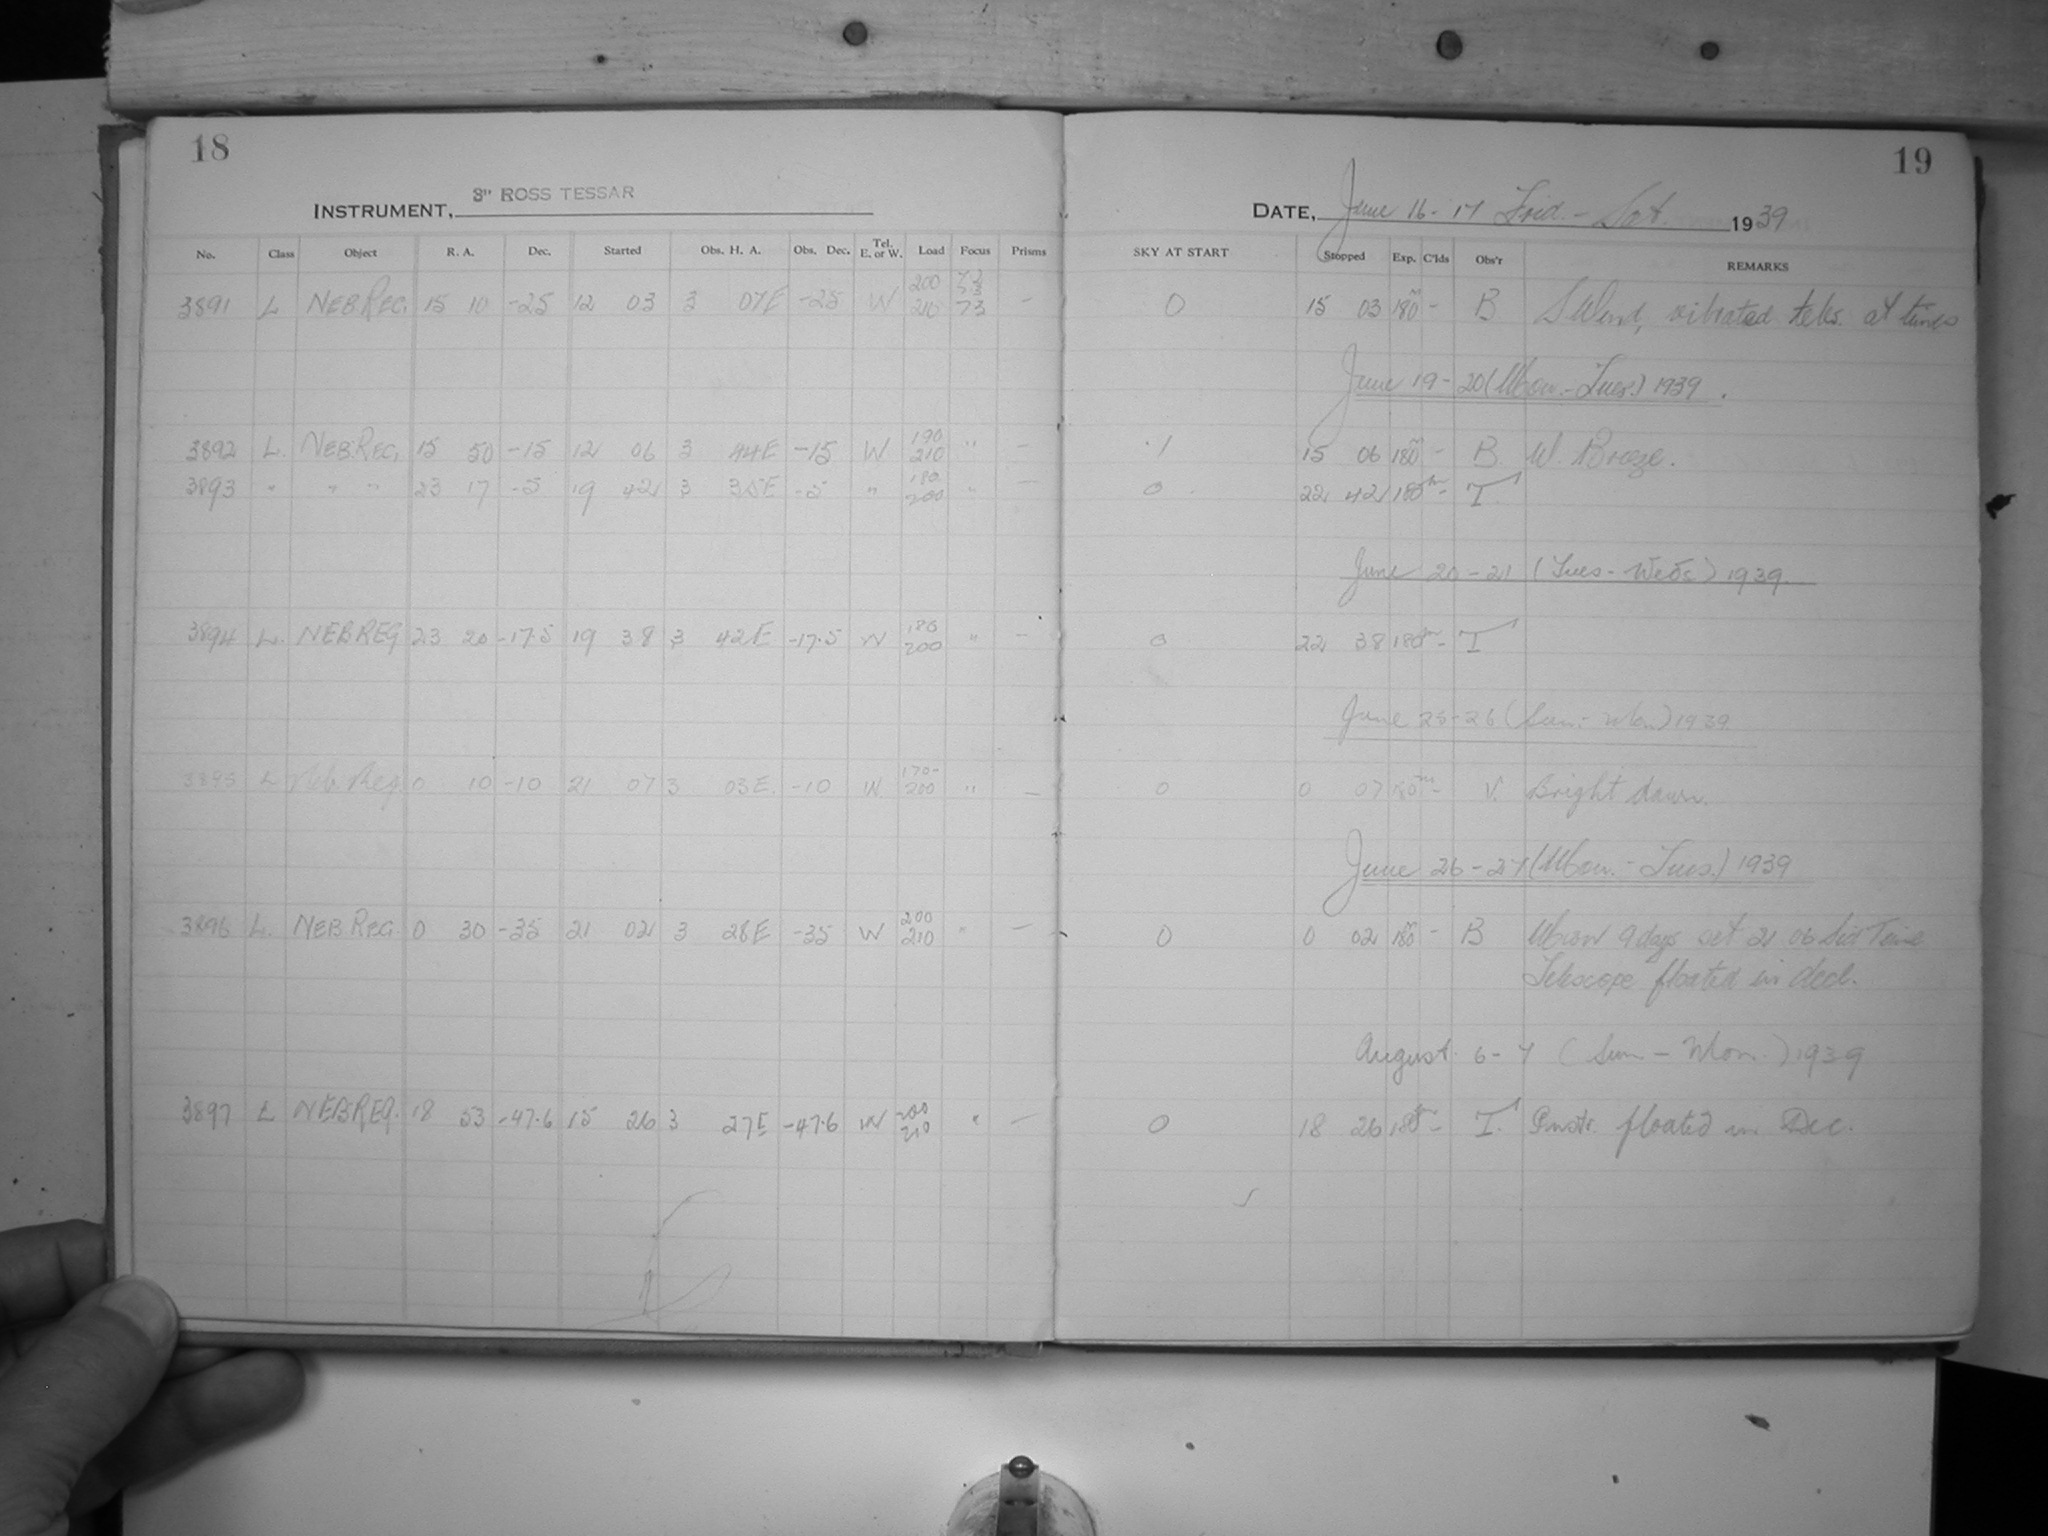 18
INSTRUMENT, 3" ROSS TESSAR
No. Class Object R. A. Dec. Started Obs. H. A. Obs. Dec. Tel. E. or W. Load Focus Prisms
3891 L NEB.REG. 15 10 -25 12 03 3 07E -25 W 200 210 73 -
3892 L. NEB.REG. 15 50 -15 12 06 3 44E -15 W 190 210 " -
3893 " " " 23 17 -5 19 42 3 35E -5 " 180 200 " -
3894 L. NEBREG 23 20 -17.5 19 38 3 42E -17.5 W 180 200 " -
3895 L Neb Reg 0 10 -10 21 07 3 03E. -10 W 170- 200 " -
3896 L. NEB REG 0 30 -35 21 02 3 28E -35 W 200 210 " -
3897 L NEBREG. 18 53 -47.6 15 26 3 27E -47.6 W 200 210 " -
19
DATE, June 16-17 Frid. - Sat. 1939
SKY AT START Stopped Exp. C'lds Obs'r REMARKS
0 15 03 180m - B S Wind, vibrated teles. at times
June 19-20 (Mon.-Tues.) 1939.
1 15 06 180m - B. W. Breeze.
0 22 42 180m - T
June 20-21 (Tues-Wed) 1939
0 22 38 180m - T
June 25-26 (Sun.-Mon) 1939
0 0 07 180m - V. Bright dawn.
June 26-27 (Mon.-Tues.) 1939
0 0 02 180m - B Moon 9 days set 21 06 Sid Time
Telescope floated in decl.
August 6-7 (Sun-Mon.) 1939
0 18 26 180m - T. Instr. floated in Dec.